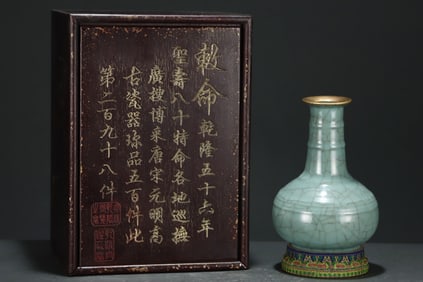 敕命乾隆五十六年
聖壽八十特命各地巡撫
廣搜博采唐宋元明高
古瓷器珍品五百件此
第二百九十八件